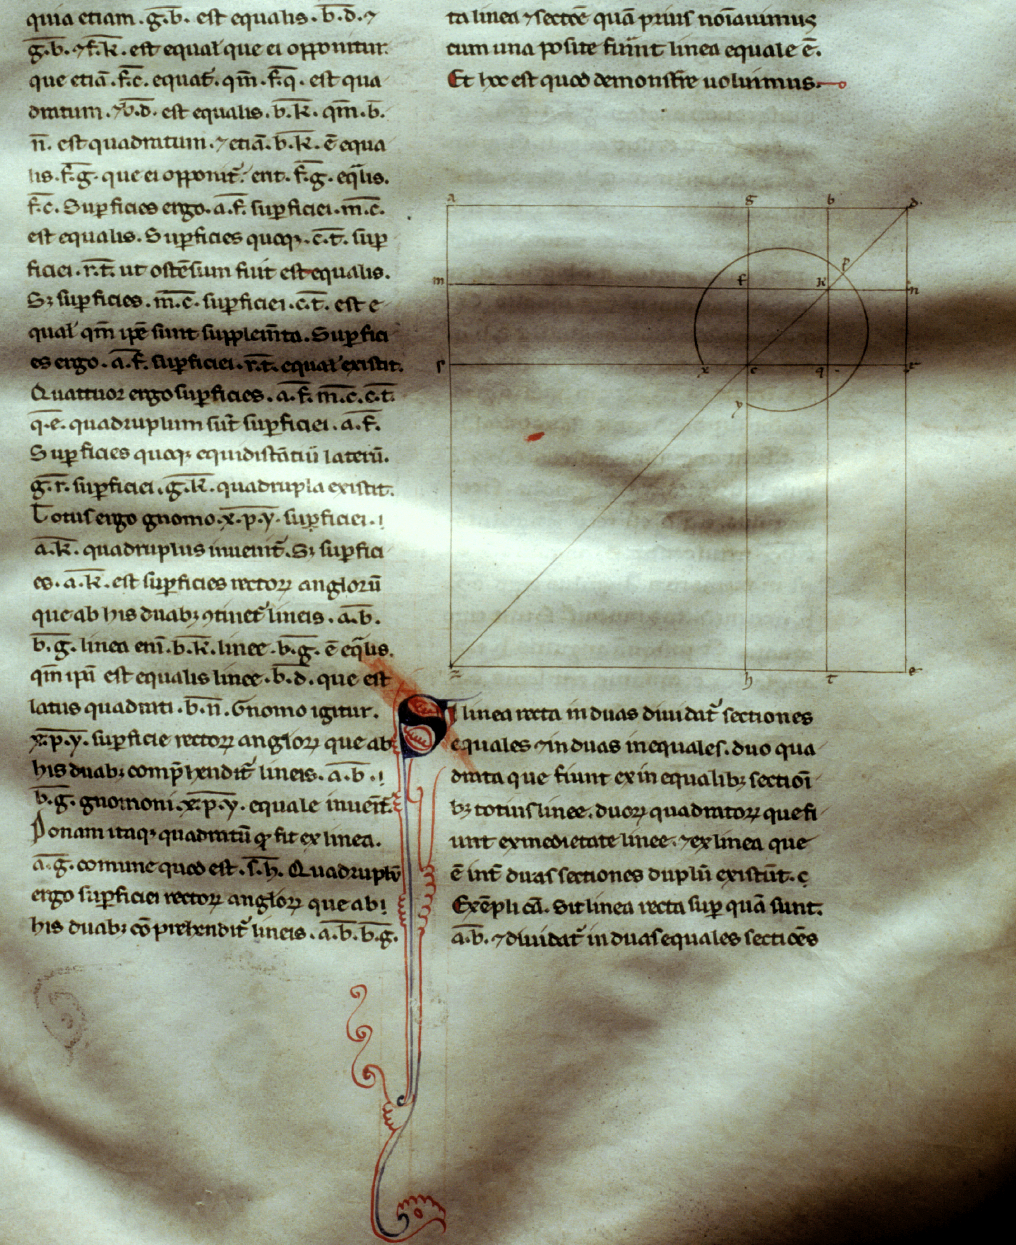 quia etiam .g.b. est equalis .b.d. ⁊
g.b. ⁊ f.k. est equal' que ei opponitur.
que etiā .f.c. equat̄. qm̄ .f.q. est qua
dratum . ⁊ b.d. est equalis .b.k. qm̄ .b.
n̄. est quadratum . ⁊ etiā .b.k. ē equa
lis .f.g. que ei opponit̄. erit .f.g. eq̄lis.
f.c. Sup̄ficies ergo .a.f. sup̄ficiei .m.c.
est equalis. Sup̄ficies quoqꝫ .c.t. sup̄
ficiei .r.t. ut ostēsum fuit est equalis.
Sꝫ sup̄ficies .m.c. sup̄ficiei .c.t. est e
qual' qm̄ ip̄e sunt supplem̄ta. Sup̄fici
es ergo .a.f. sup̄ficiei .r.t. equal' existit.
Quattuor ergo sup̄ficies .a.f. m.c. c.t.
q.e. quadruplum sūt sup̄ficiei .a.f.
Sup̄ficies quoqꝫ equidistātiū laterū.
g.r. sup̄ficiei .g.k. quadrupla existit.
Totus ergo gnomo .x.p.y. sup̄ficiei .
a.k. quadruplus invenit̄. Sꝫ sup̄fici
es .a.k. est sup̄ficies rectoꝝ anglorū
que ab his duabꝫ ꝯtinet̄ lineis .a.b.
b.g. linea eni .b.k. linee .b.g. ē eq̄lis.
qm̄ ip̄i est equalis linee .b.d. que est
latus quadrati .b.n. Gnomo igitur.
x.p.y. sup̄ficie rectoꝝ angloꝝ que ab
his duabꝫ comp̄hendit̄ lineis .a.b.
b.g. gnomoni .x.p.y. equale invēit̄.
Ponam itaqꝫ quadratū qd̄ fit ex linea.
a.g. comune quod est .s.h. Quadruplū
ergo sup̄ficiei rectoꝝ angloꝝ que ab
his duabꝫ cōprehendit̄ lineis .a.b. b.g.
ta linea ⁊ sectōe quā prius noīavimus
cum una posite fuīnt linea equale ē.
Et hoc est quod demonstr̄re voluimus.
a g b d
p
m f k n
s x c q r
y
z h t e
SI linea recta in duas dividat̄ sectiones
equales ⁊ in duas inequales. duo qua
drata que fiunt ex inequalibꝫ sectioī
bꝫ totius linee. duoꝝ quadratoꝝ que fi
unt ex medietate linee. ⁊ ex linea que
ē int̄ duas sectiones duplū existūt.
Exēpli cā. Sit linea recta sup̄ quā sunt.
a.b. ⁊ dividat̄ in duas equales sectiōes